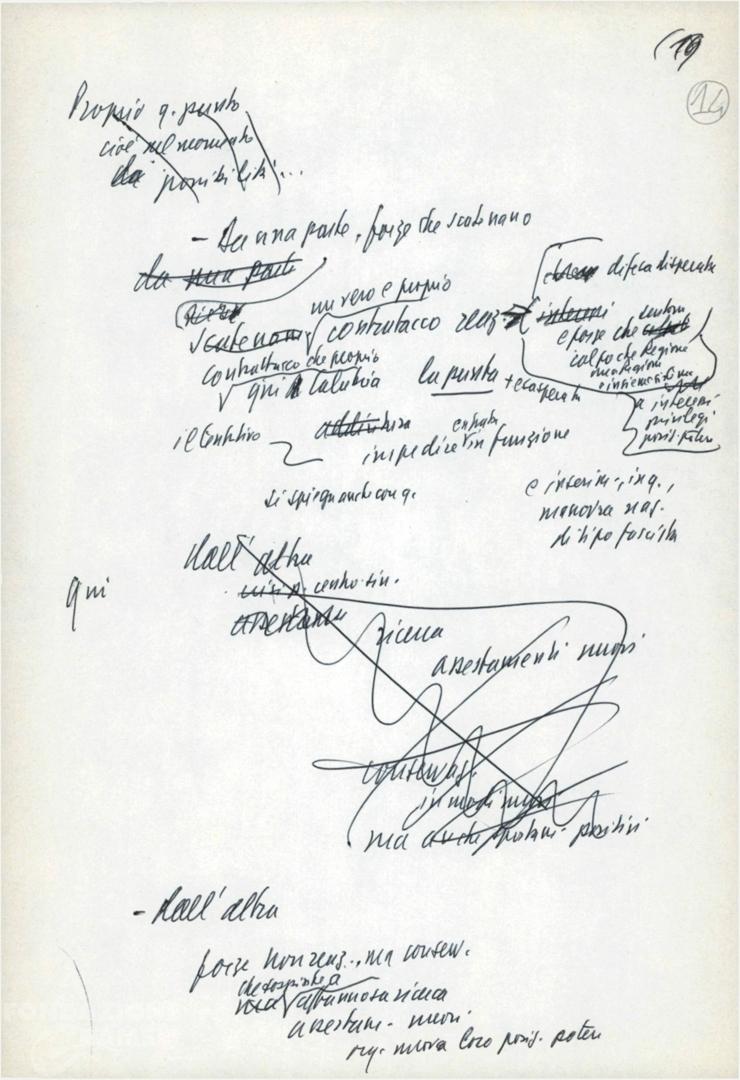 (19
14
Proprio q. punto
cioè nel momento
da possibilità...
- Da una parte, forze che scatenano
da una parte
un vero e proprio
scatenano contrattacco reaz.
contrattacco che proprio
qui Calabria la punta + esasperata
difesa disperata
interessi
e forse che sentono
colpo che Regione
una Regione
e insieme
a interessi
privilegi
posiz. potere
il tentativo addirittura
impedire entrata in funzione
si spiega anche con q.
e inserim., in q.,
manovra naz.
di tipo fascista
dall'altra
qui
centro-sin.
assestam
ricerca
assestamenti nuovi
conservaz.
in modi nuovi
ma anche spostam. positivi
- dall'altra
forze non reaz., ma conserv.
che sospinte a
ma affannosa ricerca
assestam. nuovi
nuova loro posiz. potere